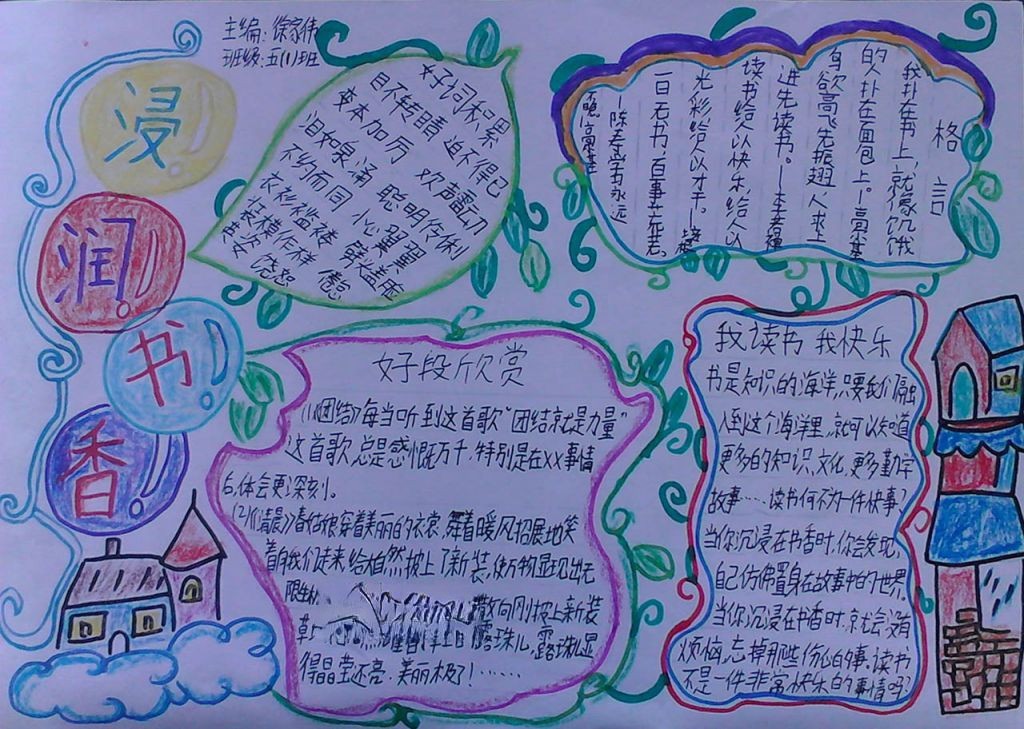 主编：徐家伟
班级：五(1)班
浸
润
书
香
好词积累
目不转睛 迫不得已
变本加厉 欢声雷动
泪如泉涌 聪明伶俐
不约而同 小心翼翼
衣衫褴褛
装模作样
饶恕
格言
我扑在书上，就像饥饿
的人扑在面包上。—高尔基
鸟欲高飞先振翅，人求上
进先读书。—李苦禅
读书给人以快乐，给人以
光彩，给人以才干。—培根
一日无书，百事荒芜。
—陈寿
好段欣赏
(1)《团结》每当听到这首歌“团结就是力量”
这首歌总是感慨万千，特别是在XX事情
后，体会更深刻。
(2)《清晨》春姑娘穿着美丽的衣裳，舞着暖风招展地笑
着向我们走来，给大自然披上了新装，使万物显现出无
限生机
散向刚披上新装
露珠儿，露珠儿显
得晶莹还亮，美丽极了！……
我读书 我快乐
书是知识的海洋，只要我们融
入到这个海洋里，就可以知道
更多的知识，文化，更多勤学
故事……读书何不为一件快事？
当你沉浸在书香时，你会发现，
自己仿佛置身在故事中的世界。
当你沉浸在书香时，就会没有
烦恼，忘掉那些伤心的事。读书
不是一件非常快乐的事情吗？